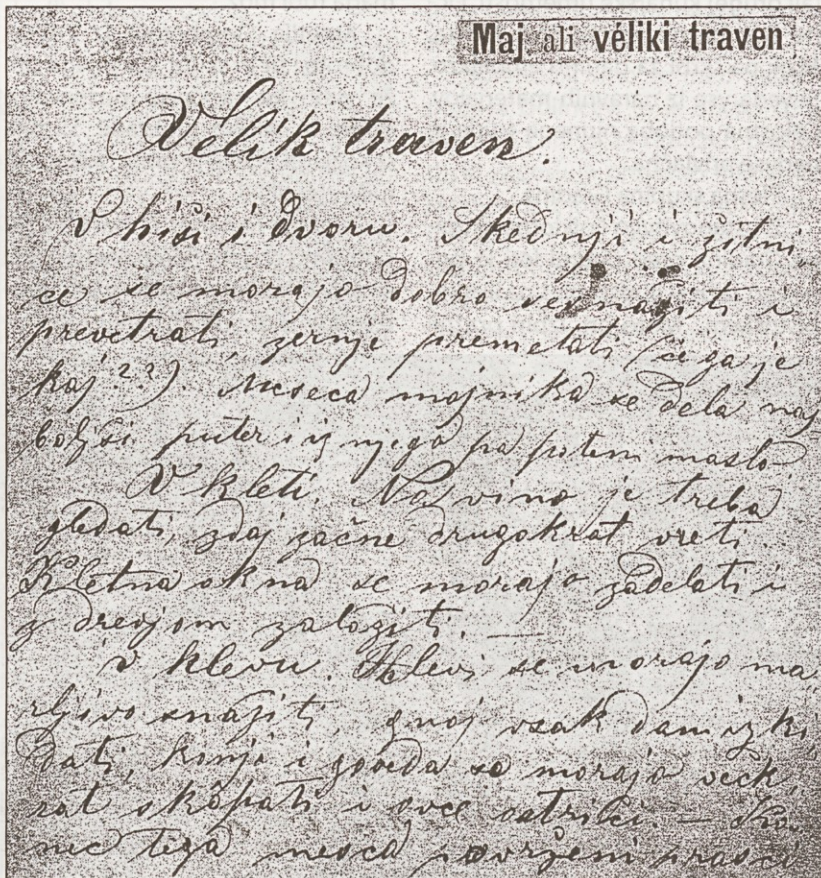 Maj ali véliki traven
Velik traven.
V hiši i dvoru. Skednji i žitni-
ce se morajo dobro sesnažiti i
prevetrati, zernje premetati (če ga je
kaj??). Meseca majnika se dela naj
boljši puter i iz njega pa potem maslo.
V kleti. Na vino je treba
gledati, zdaj začne drugokrat vreti.
Kletna okna se morajo zadelati i
z drevjom založiti. —
V hlevu. Hlevi se morajo ma-
rljivo snažiti, gnoj vsak dan izki-
dati, konji i goveda se morajo večk-
rat skopati i ovce ostrići. — Ko-
nec tega mesca povrženi prasci